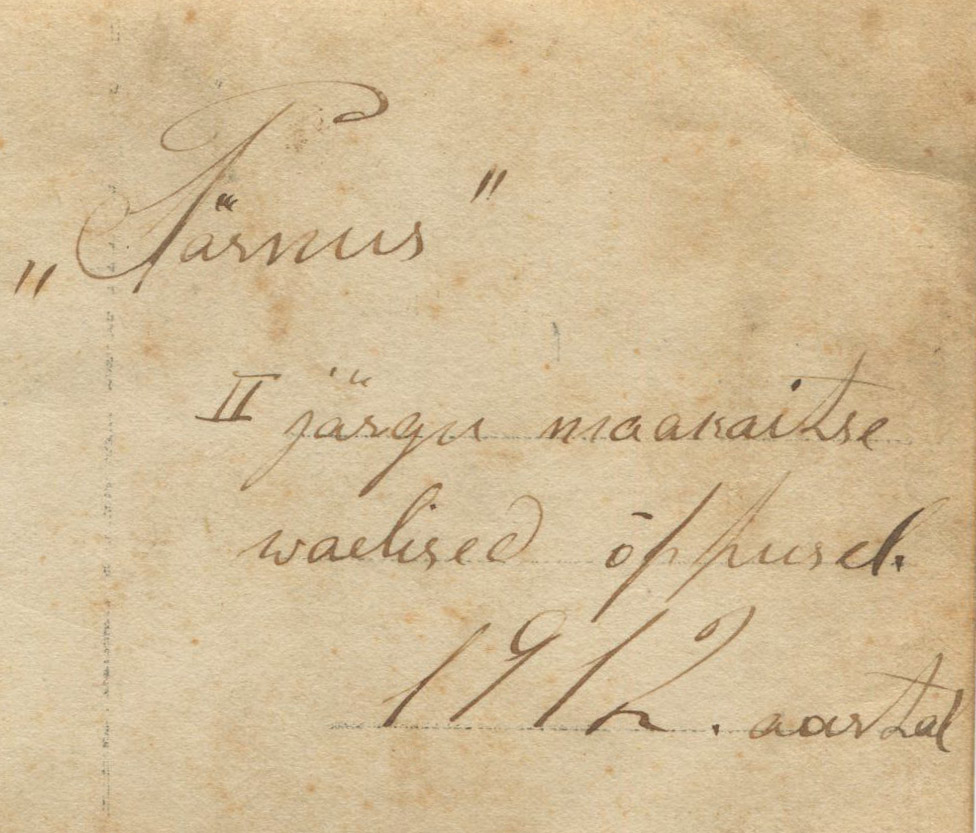 „Pärnus"
II järgu maakaitse
waelised õppusel.
1912. aastal